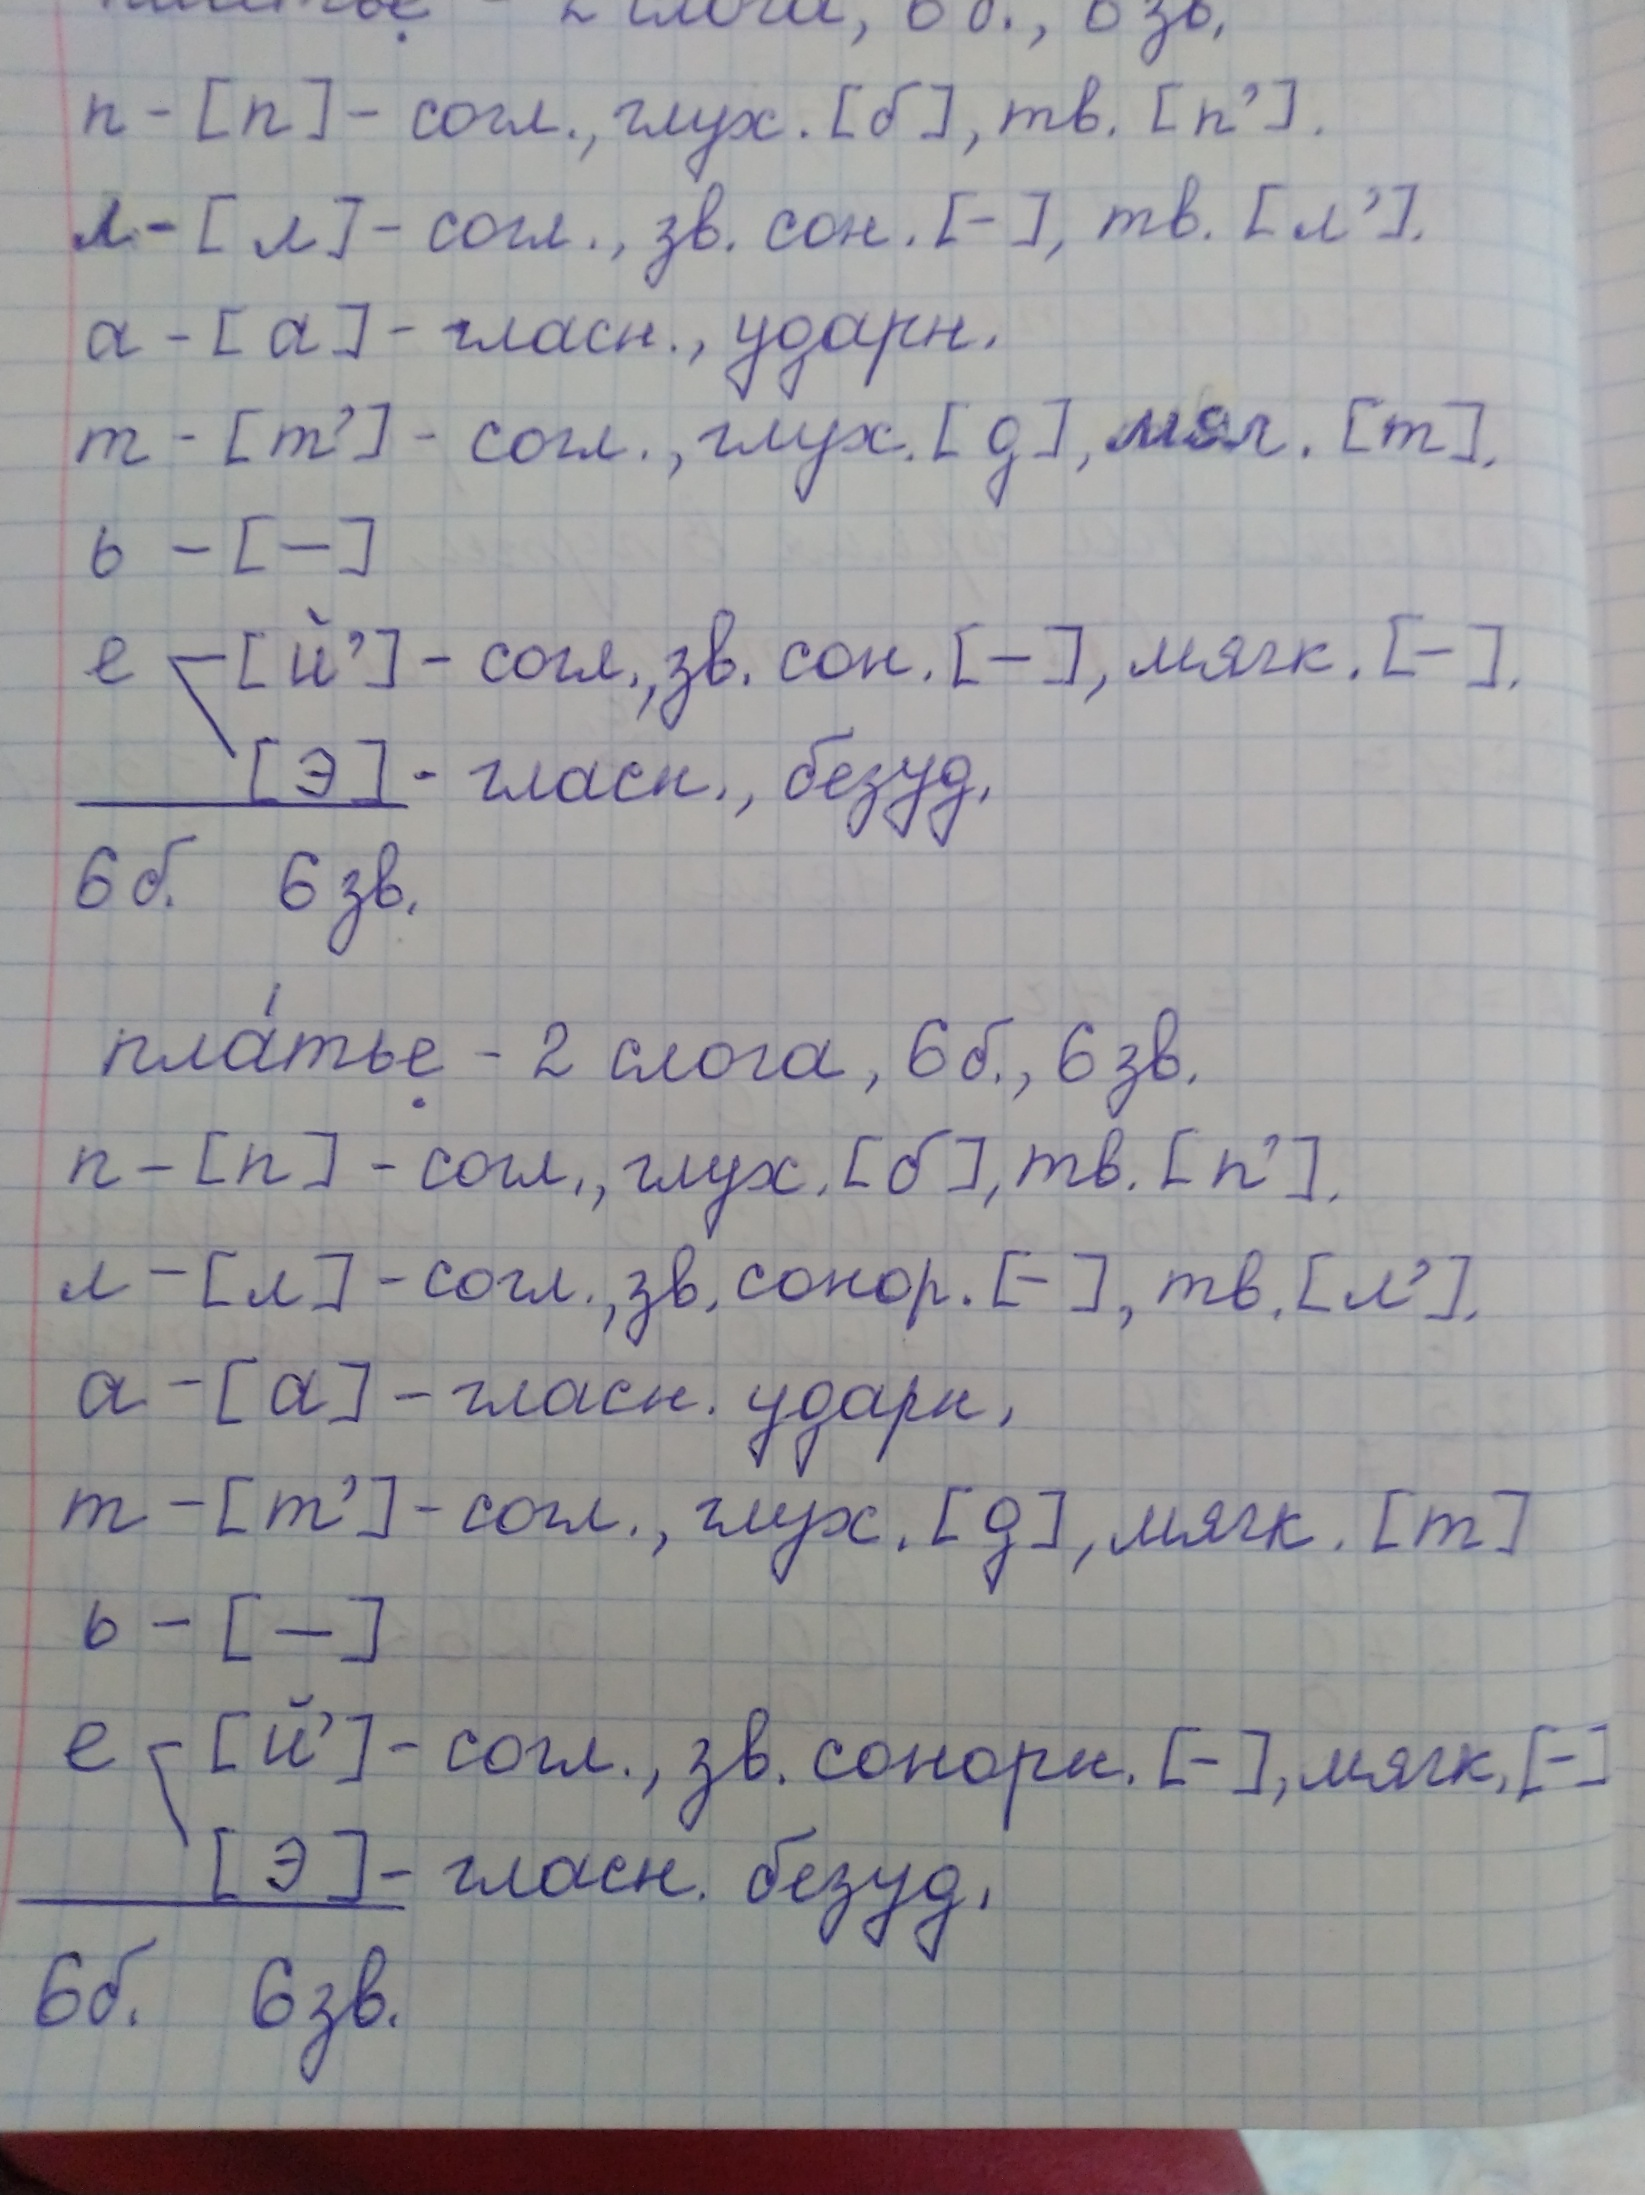 платье - 2 слога, 6 б., 6 зв.
п - [п] - согл., глух. [б], тв. [п'].
л - [л] - согл., зв. сон. [-], тв. [л'].
а - [а] - гласн., ударн.
т - [т'] - согл., глух. [д], мяг. [т].
ь - [-]
е - [й'] - согл., зв. сон. [-], мягк. [-].
[э] - гласн., безуд.
6 б. 6 зв.
пла́тье - 2 слога, 6 б., 6 зв.
п - [п] - согл., глух. [б], тв. [п'].
л - [л] - согл., зв. сонор. [-], тв. [л'].
а - [а] - гласн. ударн.
т - [т'] - согл., глух. [д], мягк. [т]
ь - [-]
е - [й'] - согл., зв. сонорн. [-], мягк. [-]
[э] - гласн. безуд.
6 б. 6 зв.